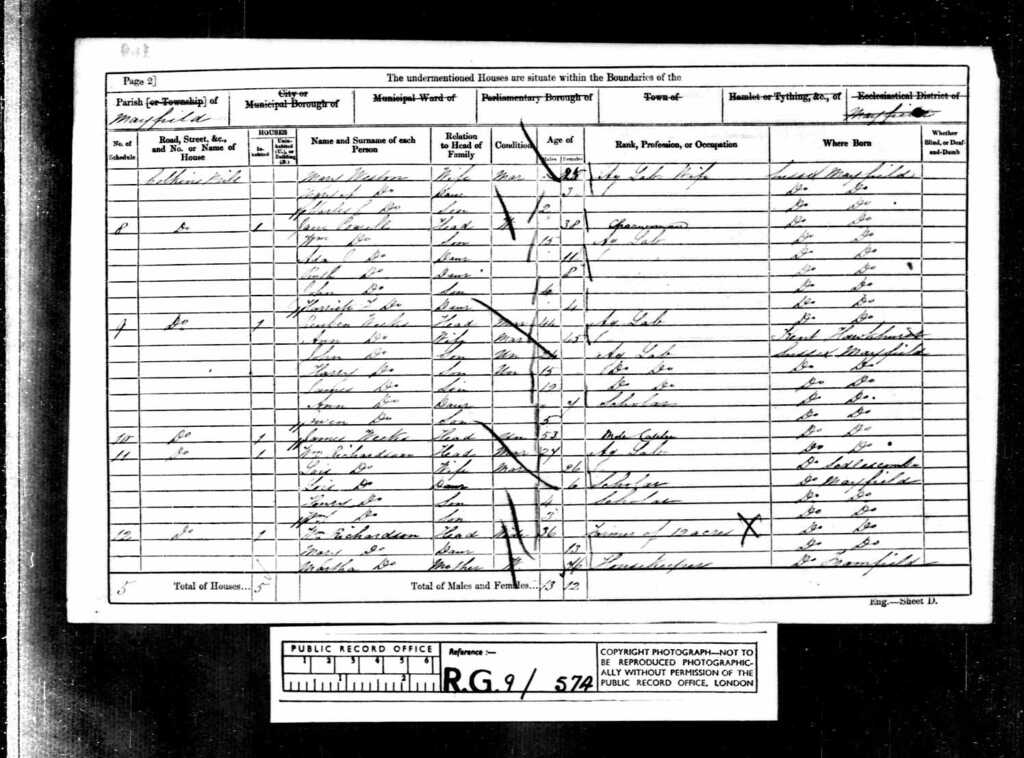 Page 2] The undermentioned Houses are situate within the Boundaries of the
Parish [or Township] of City or Municipal Borough of Municipal Ward of Parliamentary Borough of Town of Hamlet or Tything, &c., of Ecclesiastical District of
Mayfield Mayfield
No. of Schedule Road, Street, &c., and No. or Name of House HOUSES Inhabited Uninhabited (U.), or Building (B.) Name and Surname of each Person Relation to Head of Family Condition Age of Males Females Rank, Profession, or Occupation Where Born Whether Blind, or Deaf-and-Dumb
Mary Weston Wife Mar 25 Ag Lab Wife Sussex Mayfield
Do Daur 3 Do Do
Charles Do Son 2 Do Do
8 Do 1 Head W 38 Charwoman Do Do
Wm Do Son 15 Ag Lab Do Do
Ada Do Daur 11 Do Do
Ruth Do Daur 8 Do Do
John Do Son 6 Do Do
Harriet Do Daur 4 Do Do
9 Do 1 Reuben Weeks Head Mar 44 Ag Lab Do Do
Ann Do Wife Mar 45 Kent Hawkhurst
John Do Son Un Ag Lab Sussex Mayfield
Harry Do Son Un 15 Do Do Do Do
James Do Son 12 Do Do Do Do
Ann Do Daur 7 Scholar Do Do
Do Son 5 Do Do
10 Do 1 James Weeks Head Un 53 Mole Catcher Do Do
11 Do 1 Wm Richardson Head Mar 27 Ag Lab Do Do
Lois Do Wife Mar 26 Do Sedlescomb
Lois Do Daur 6 Scholar Do Mayfield
Henry Do Son 4 Scholar Do Do
Wm Do Son Do Do
12 Do 1 Wm Richardson Head Wid 36 Farmer of 12 acres X Do Do
Mary Do Daur 13 Do Do
Martha Do Mother W 74 Housekeeper Do Framfield
5 Total of Houses... 5 Total of Males and Females... 13 12
Eng.—Sheet D.
PUBLIC RECORD OFFICE
1 2 3 4 5 6
1 2
Reference :—
R.G. 9/ 574
COPYRIGHT PHOTOGRAPH—NOT TO
BE REPRODUCED PHOTOGRAPHIC-
ALLY WITHOUT PERMISSION OF THE
PUBLIC RECORD OFFICE, LONDON